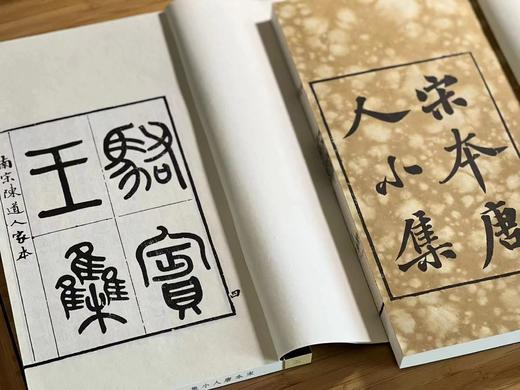 駱賓
王集
南宋陳道人家本
四
宋本唐人小集
宋本唐
人小集